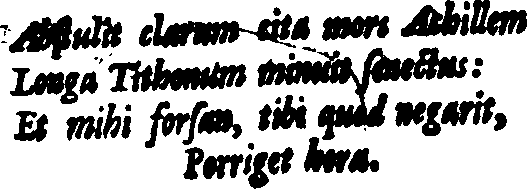 Abſtulit clarum cita mors Achillem
Longa Tithonum minuit ſenectus:
Et mihi forſan, tibi quod negarit,
Porriget hora.